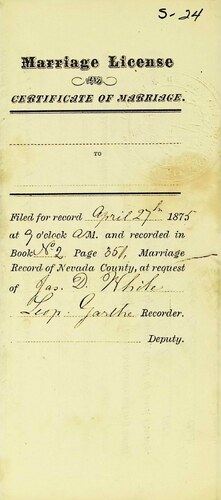 S-24
Marriage License
AND
CERTIFICATE OF MARRIAGE.
TO
Filed for record April 27th 1875
at 9 o'clock A.M. and recorded in
Book No 2 Page 351, Marriage
Record of Nevada County, at request
of Jas. D. White
Leop. Garthe Recorder.
Deputy.